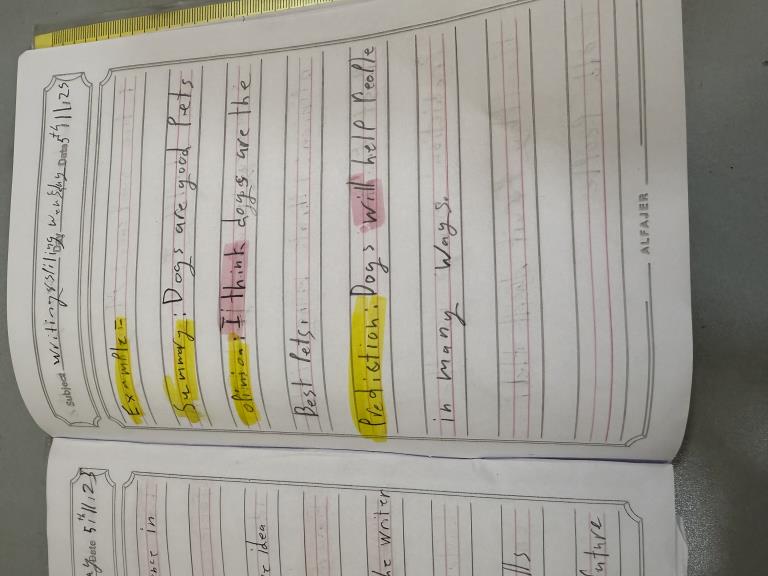 Subject writing & siling Day monday Date 5th/11/23
Example:-
Summary: Dogs are good Pets
opinion: I think dogs are the
Best Pets.
Prediction: Dogs will help People
in many ways.
ALFAJER
Date 5th/11/23
in
idea
the writer
future